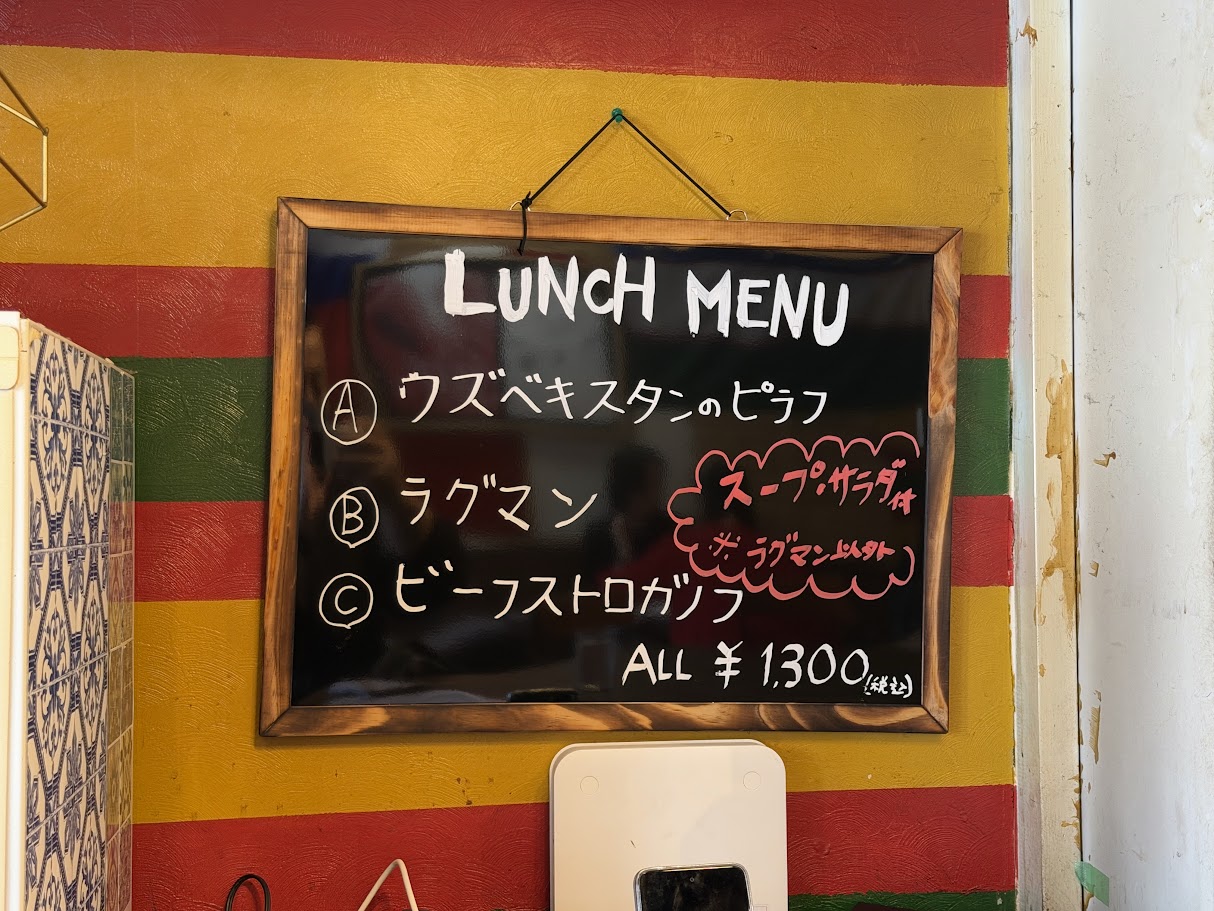 LUNCH MENU
Ⓐ ウズベキスタンのピラフ
Ⓑ ラグマン
スープ・サラダ付
※ ラグマン以外
Ⓒ ビーフストロガノフ
ALL ¥1,300(税込)